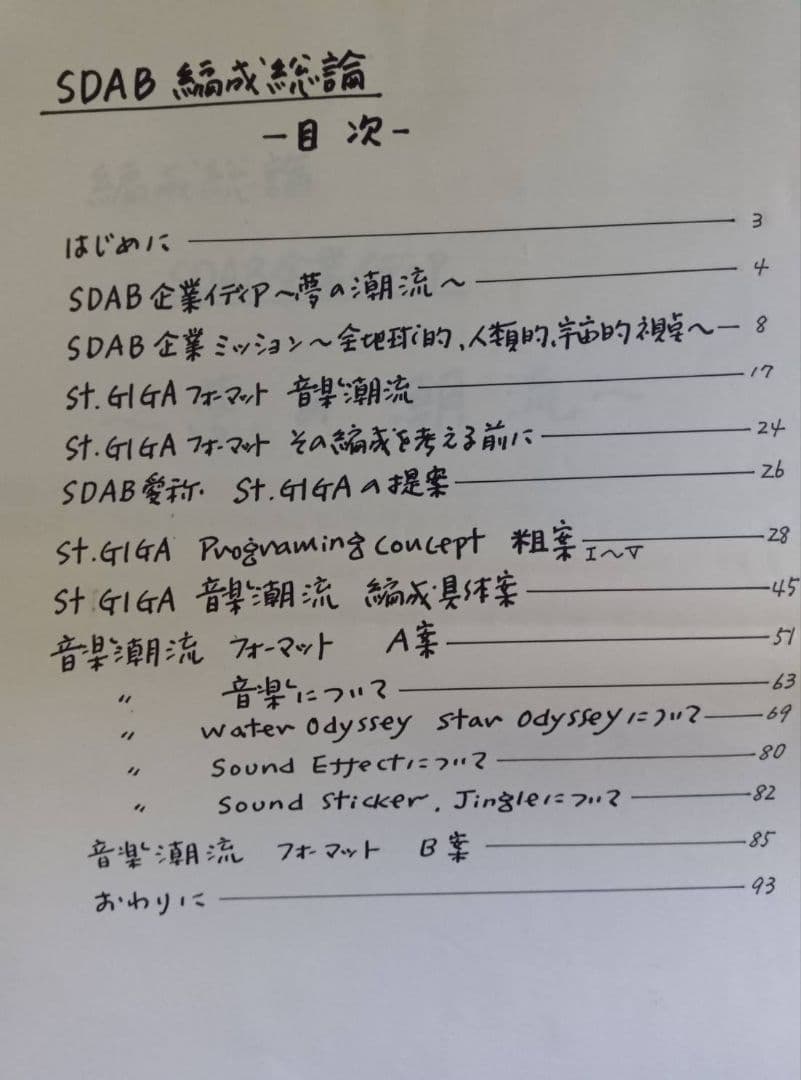 SDAB 編成総論
－目 次－
はじめに 3
SDAB 企業イディア〜夢の潮流〜 4
SDAB 企業ミッション〜全地球的、人類的、宇宙的視点へ 8
St.GIGA フォーマット 音楽潮流 17
St.GIGA フォーマット その編成を考える前に 24
SDAB愛称. St.GIGAの提案 26
St.GIGA Programing Concept 粗案 I〜V 28
St GIGA 音楽潮流 編成具体案 45
音楽潮流 フォーマット A案 51
〃 音楽について 63
〃 Water Odyssey Star Odysseyについて 69
〃 Sound Effectについて 80
〃 Sound Sticker, Jingleについて 82
音楽潮流 フォーマット B案 85
おわりに 93